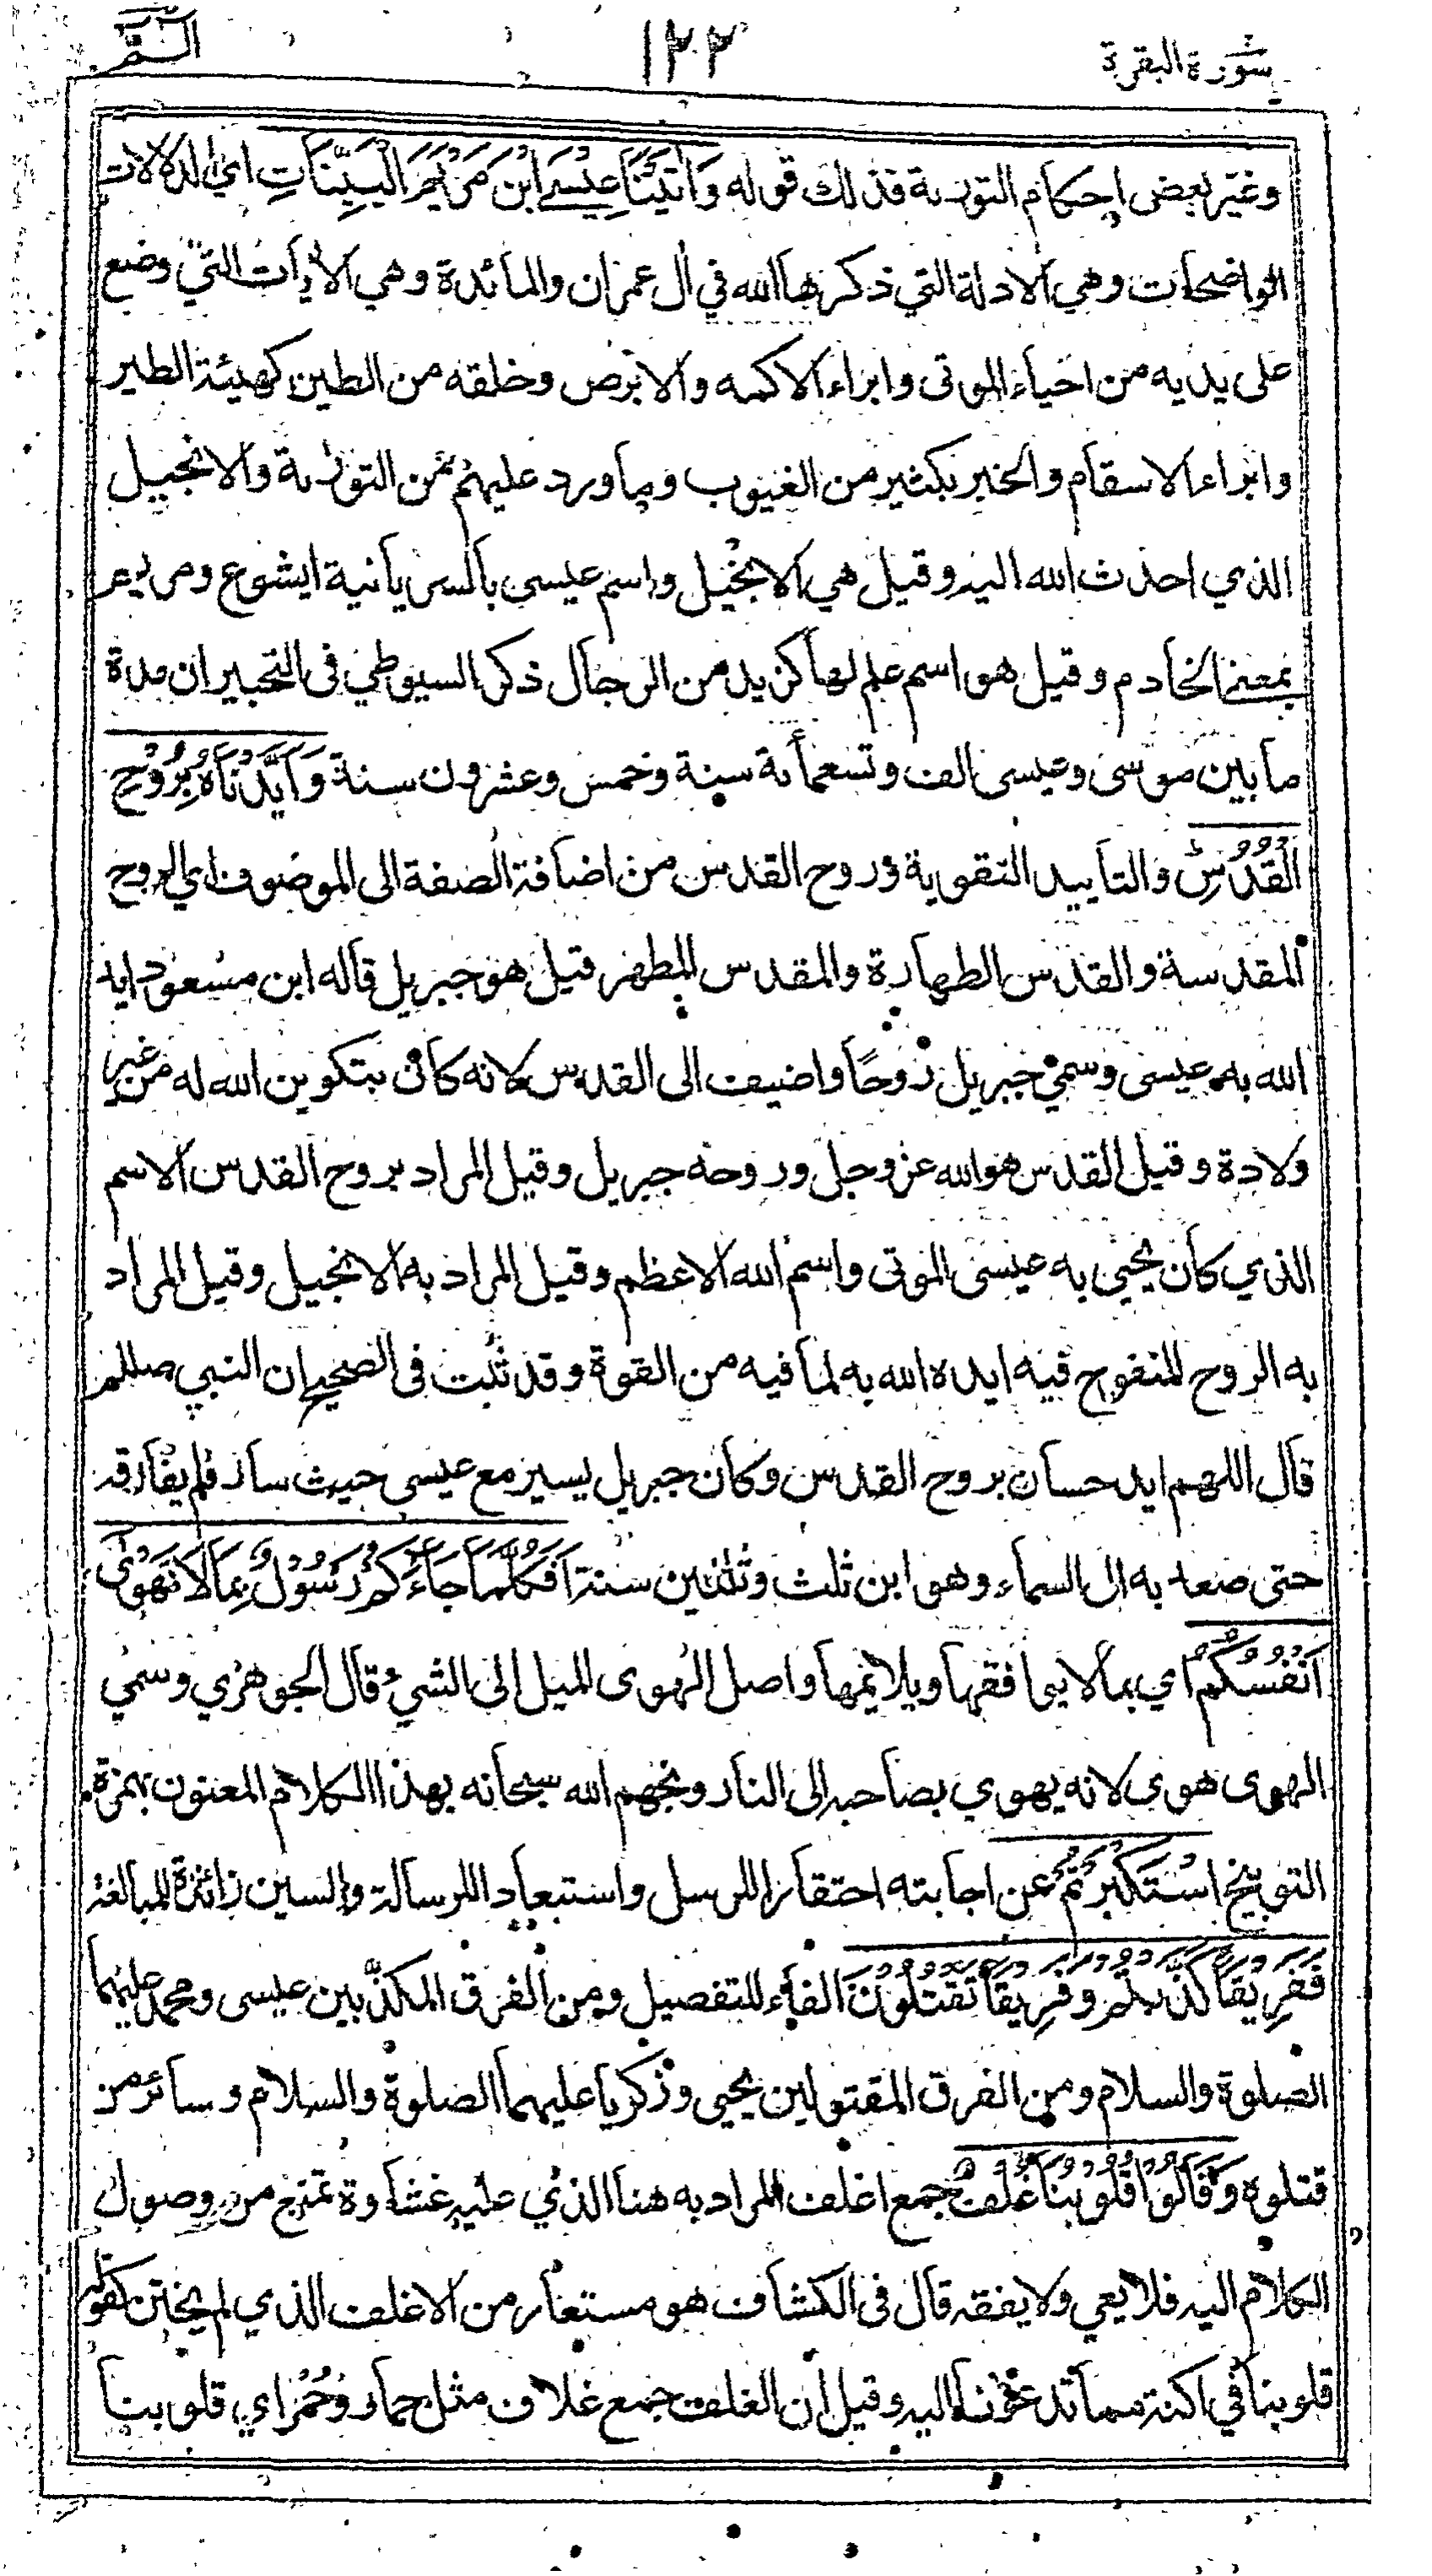 سورة البقرة
١٢٢
الٓمّٓ
وغير بعض احكام التورىة فذلك قوله وَاٰتَيْنَا عِيْسَى ابْنَ مَرْيَمَ الْبَيِّنَاتِ اي الدلالات
الواضحات وهي الادلة التي ذكرها الله في اٰل عمران والمائدة وهي الاٰيات التي وضع
على يديه من احياء الموتى وابراء الاكمه والابرص وخلقه من الطين كهيئة الطير
وابراء الاسقام والخبر بكثير من الغيوب وما ورد عليهم من التورىة والانجيل
الذي احدث الله اليه وقيل هي الانجيل واسم عيسى بالسريانية ايشوع ومريم
بمعنى الخادم وقيل هو اسم علم لها كزيد من الرجال ذكر السيوطي فى التحبير ان مدة
ما بين موسى وعيسى الف وتسعمائة سنة وخمس وعشرون سنة وَاَيَّدْنَاهُ بِرُوْحِ
الْقُدُسِ والتاييد التقوية وروح القدس من اضافة الصفة الى الموصوف اي الروح
المقدسة والقدس الطهارة والمقدس المطهر قيل هو جبريل قاله ابن مسعود ايد
الله به عيسى وسمي جبريل روحًا واضيف الى القدس لانه كان بتكوين الله له من غير
ولادة وقيل القدس هو الله عز وجل وروحه جبريل وقيل المراد بروح القدس الاسم
الذي كان يحيي به عيسى الموتى واسم الله الاعظم وقيل المراد به الانجيل وقيل المراد
به الروح المنفوخ فيه ايده الله به لما فيه من القوة وقد ثبت فى الصحيح ان النبي صللم
قال اللهم ايد حسان بروح القدس وكان جبريل يسير مع عيسى حيث سار فلم يفارقه
حتى صعد به الى السماء وهو ابن ثلث وثلثين سنة اَفَكُلَّمَا جَاءَكُمْ رَسُوْلٌ بِمَا لَا تَهْوٰى
اَنْفُسُكُمْ اي بما لا يوافقها ويلائمها واصل الهوى الميل الى الشيء قال الجوهري وسمي
الهوى هوى لانه يهوي بصاحبه الى النار وبخهم الله سبحانه بهذا الكلام المعنون بهمزة
التوبيخ اسْتَكْبَرْتُمْ عن اجابته احتقارا للرسل واستبعادا للرسالة والسين زائدة للمبالغة
فَفَرِيْقًا كَذَّبْتُمْ وَفَرِيْقًا تَقْتُلُوْنَ الفاء للتفصيل ومن الفرق المكذّبين عيسى ومحمد عليهما
الصلوة والسلام ومن الفرق المقتولين يحيى وزكريا عليهما الصلوة والسلام وسائر من
قتلوه وَقَالُوْا قُلُوْبُنَا غُلْفٌ جمع اغلف المراد به هنا الذي عليه غشاوة تمنع من وصول
الكلام اليه فلا يعي ولا يفقه قال فى الكشاف هو مستعار من الاغلف الذي لم يختن كقوله
قلوبنا في اكنة مما تدعونا اليه وقيل ان الغلف جمع غلاف مثل حمار وحُمُر اي قلوبنا